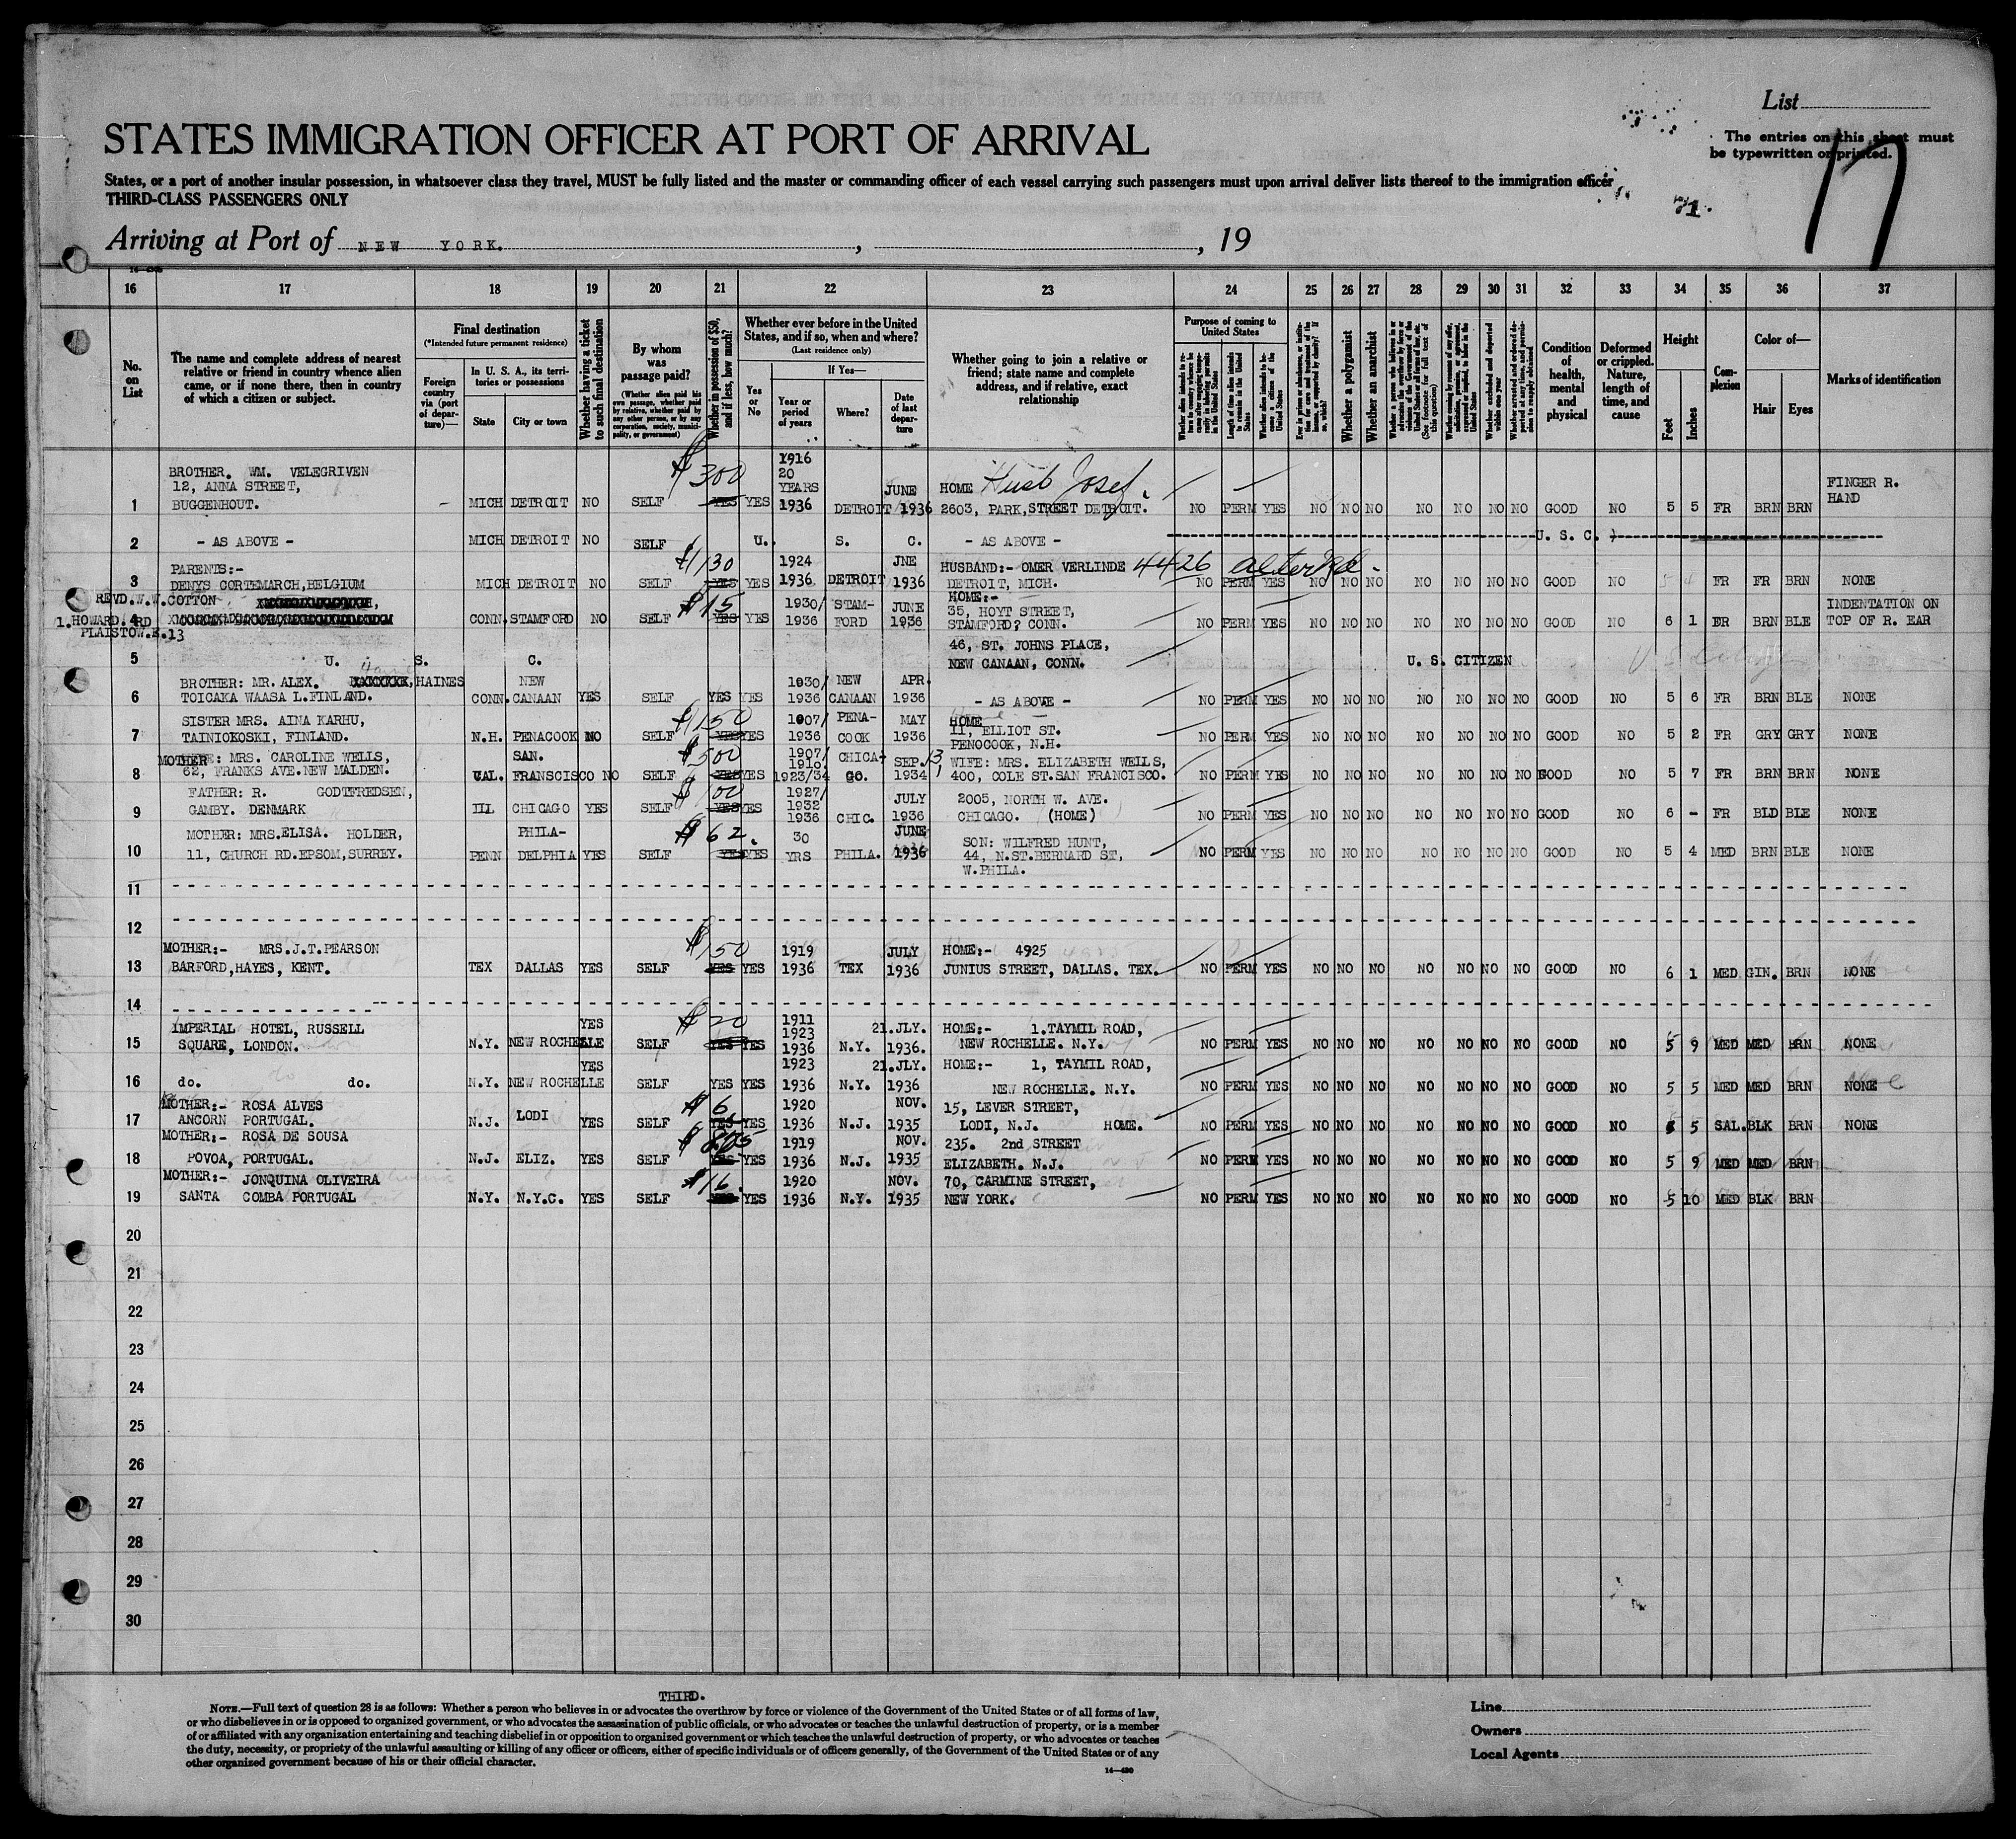 List
STATES IMMIGRATION OFFICER AT PORT OF ARRIVAL
The entries on this sheet must
be typewritten or printed.
17
States, or a port of another insular possession, in whatsoever class they travel, MUST be fully listed and the master or commanding officer of each vessel carrying such passengers must upon arrival deliver lists thereof to the immigration officer
THIRD-CLASS PASSENGERS ONLY
Arriving at Port of NEW YORK. , , 19
16 17 18 19 20 21 22 23 24 25 26 27 28 29 30 31 32 33 34 35 36 37
No. on List
The name and complete address of nearest relative or friend in country whence alien came, or if none there, then in country of which a citizen or subject.
Final destination
(*Intended future permanent residence)
Foreign country via (port of departure)—
In U. S. A., its territories or possessions
State
City or town
Whether having a ticket to such final destination
By whom was passage paid?
(Whether alien paid his own passage, whether paid by relative, whether paid by any other person, or by any corporation, society, municipality, or government)
Whether in possession of $50, and if less, how much?
Whether ever before in the United States, and if so, when and where?
(Last residence only)
Yes or No
If Yes—
Year or period of years
Where?
Date of last departure
Whether going to join a relative or friend; state name and complete address, and if relative, exact relationship
Purpose of coming to United States
Length of time alien intends to remain in the United States
Whether alien intends to become a citizen of the United States
Whether a polygamist
Whether an anarchist
Whether excluded and deported within one year
Condition of health, mental and physical
Deformed or crippled. Nature, length of time, and cause
Height
Feet
Inches
Complexion
Color of—
Hair
Eyes
Marks of identification
BROTHER. WM. VELEGRIVEN $300 1916 FINGER R.
12, ANNA STREET, 20 YEARS JUNE HOME HAND
1 BUGGENHOUT. - MICH DETROIT NO SELF YES YES 1936 DETROIT 1936 2603, PARK, STREET DETROIT. NO PERM YES NO NO NO NO NO NO NO GOOD NO 5 5 FR BRN BRN
2 - AS ABOVE - MICH DETROIT NO SELF U. S. C. - AS ABOVE - U. S. C.
PARENTS:- 130 1924 JNE HUSBAND:- OMER VERLINDE 4426
3 DENYS CORTEMARCH, BELGIUM MICH DETROIT NO SELF YES YES 1936 DETROIT 1936 DETROIT, MICH. NO PERM YES NO NO NO NO NO NO NO GOOD NO 5 4 FR FR BRN NONE
REVD. W. W. COTTON $15 1930/ STAM- JUNE HOME:- INDENTATION ON
1. HOWARD. RD 35, HOYT STREET,
4 PLAISTOW.E.13 CONN. STAMFORD NO SELF YES YES 1936 FORD 1936 STAMFORD? CONN. NO PERM YES NO NO NO NO NO NO NO GOOD NO 6 1 FR BRN BLE TOP OF R. EAR
46, ST. JOHNS PLACE,
5 U. S. C. NEW CANAAN, CONN. U. S. CITIZEN
BROTHER: MR. ALEX. HAINES NEW 1930/ NEW APR.
6 TOICAKA WAASA L. FINLAND. CONN. CANAAN YES SELF YES YES 1936 CANAAN 1936 - AS ABOVE - NO PERM YES NO NO NO NO NO NO NO GOOD NO 5 6 FR BRN BLE NONE
SISTER MRS. AINA KARHU, $150 1907/ PENA- MAY HOME
7 TAINIOKOSKI, FINLAND. N.H. PENACOOK NO SELF YES YES 1936 COOK 1936 11, ELLIOT ST. NO PERM YES NO NO NO NO NO NO NO GOOD NO 5 2 FR GRY GRY NONE
PENOCOOK, N.H.
MOTHER: MRS. CAROLINE WELLS, SAN. $500 1907/ 1910/ CHICA- SEP. 13, WIFE: MRS. ELIZABETH WELLS,
8 62, FRANKS AVE. NEW MALDEN. CAL. FRANSCISCO NO SELF YES YES 1923/34 GO. 1934 400, COLE ST. SAN FRANCISCO. NO PERM YES NO NO NO NO NO NO NO GOOD NO 5 7 FR BRN BRN NONE
FATHER: R. GODTFREDSEN, $100 1927/ 1932 JULY 2005, NORTH W. AVE.
9 GAMBY. DENMARK ILL CHICAGO YES SELF YES YES 1936 CHIC. 1936 CHICAGO. (HOME) NO PERM YES NO NO NO NO NO NO NO GOOD NO 6 - FR BLD BLE NONE
MOTHER: MRS. ELISA. HOLDER, PHILA- $62. 30 JUNE SON: WILFRED HUNT,
10 11, CHURCH RD. EPSOM, SURREY. PENN DELPHIA YES SELF YES YES YRS PHILA. 1936 44, N. ST. BERNARD ST, NO PERM YES NO NO NO NO NO NO NO GOOD NO 5 4 MED BRN BLE NONE
W. PHILA.
11
12
MOTHER:- MRS. J. T. PEARSON $150 1919 JULY HOME:- 4925
13 BARFORD, HAYES, KENT. TEX DALLAS YES SELF YES YES 1936 TEX 1936 JUNIUS STREET, DALLAS. TEX. NO PERM YES NO NO NO NO NO NO NO GOOD NO 6 1 MED GIN. BRN NONE
14
IMPERIAL HOTEL, RUSSELL YES $20 1911 1923 21. JLY. HOME:- 1. TAYMIL ROAD,
15 SQUARE, LONDON. N.Y. NEW ROCHELLE SELF YES YES 1936 N.Y. 1936. NEW ROCHELLE. N.Y. NO PERM YES NO NO NO NO NO NO NO GOOD NO 5 9 MED MED BRN NONE
YES 1923 21. JLY. HOME:- 1, TAYMIL ROAD,
16 do. do. N.Y. NEW ROCHELLE SELF YES YES 1936 N.Y. 1936 NEW ROCHELLE. N.Y. NO PERM YES NO NO NO NO NO NO NO GOOD NO 5 5 MED MED BRN NONE
MOTHER:- ROSA ALVES $6 1920 NOV. 15, LEVER STREET,
17 ANCORN PORTUGAL. N.J. LODI YES SELF YES YES 1936 N.J. 1935 LODI, N.J. HOME. NO PERM YES NO NO NO NO NO NO NO GOOD NO 5 SAL. BLK BRN NONE
MOTHER:- ROSA DE SOUSA 1919 NOV. 235. 2nd STREET
18 POVOA, PORTUGAL. N.J. ELIZ. YES SELF YES YES 1936 N.J. 1935 ELIZABETH. N.J. NO PERM YES NO NO NO NO NO NO NO GOOD NO 5 9 MED MED BRN
MOTHER:- JONQUINA OLIVEIRA $16. 1920 NOV. 70, CARMINE STREET,
19 SANTA COMBA PORTUGAL N.Y. N.Y.C. YES SELF YES YES 1936 N.Y. 1935 NEW YORK. NO PERM YES NO NO NO NO NO NO NO GOOD NO 5 10 MED BLK BRN
20
21
22
23
24
25
26
27
28
29
30
THIRD.
NOTE.—Full text of question 28 is as follows: Whether a person who believes in or advocates the overthrow by force or violence of the Government of the United States or of all forms of law,
or who disbelieves in or is opposed to organized government, or who advocates the assassination of public officials, or who advocates or teaches the unlawful destruction of property, or is a member
of or affiliated with any organization entertaining and teaching disbelief in or opposition to organized government or which teaches the unlawful destruction of property, or who advocates or teaches
the duty, necessity, or propriety of the unlawful assaulting or killing of any officer or officers, either of specific individuals or of officers generally, of the Government of the United States or of any
other organized government because of his or their official character.
14—430
Line
Owners
Local Agents